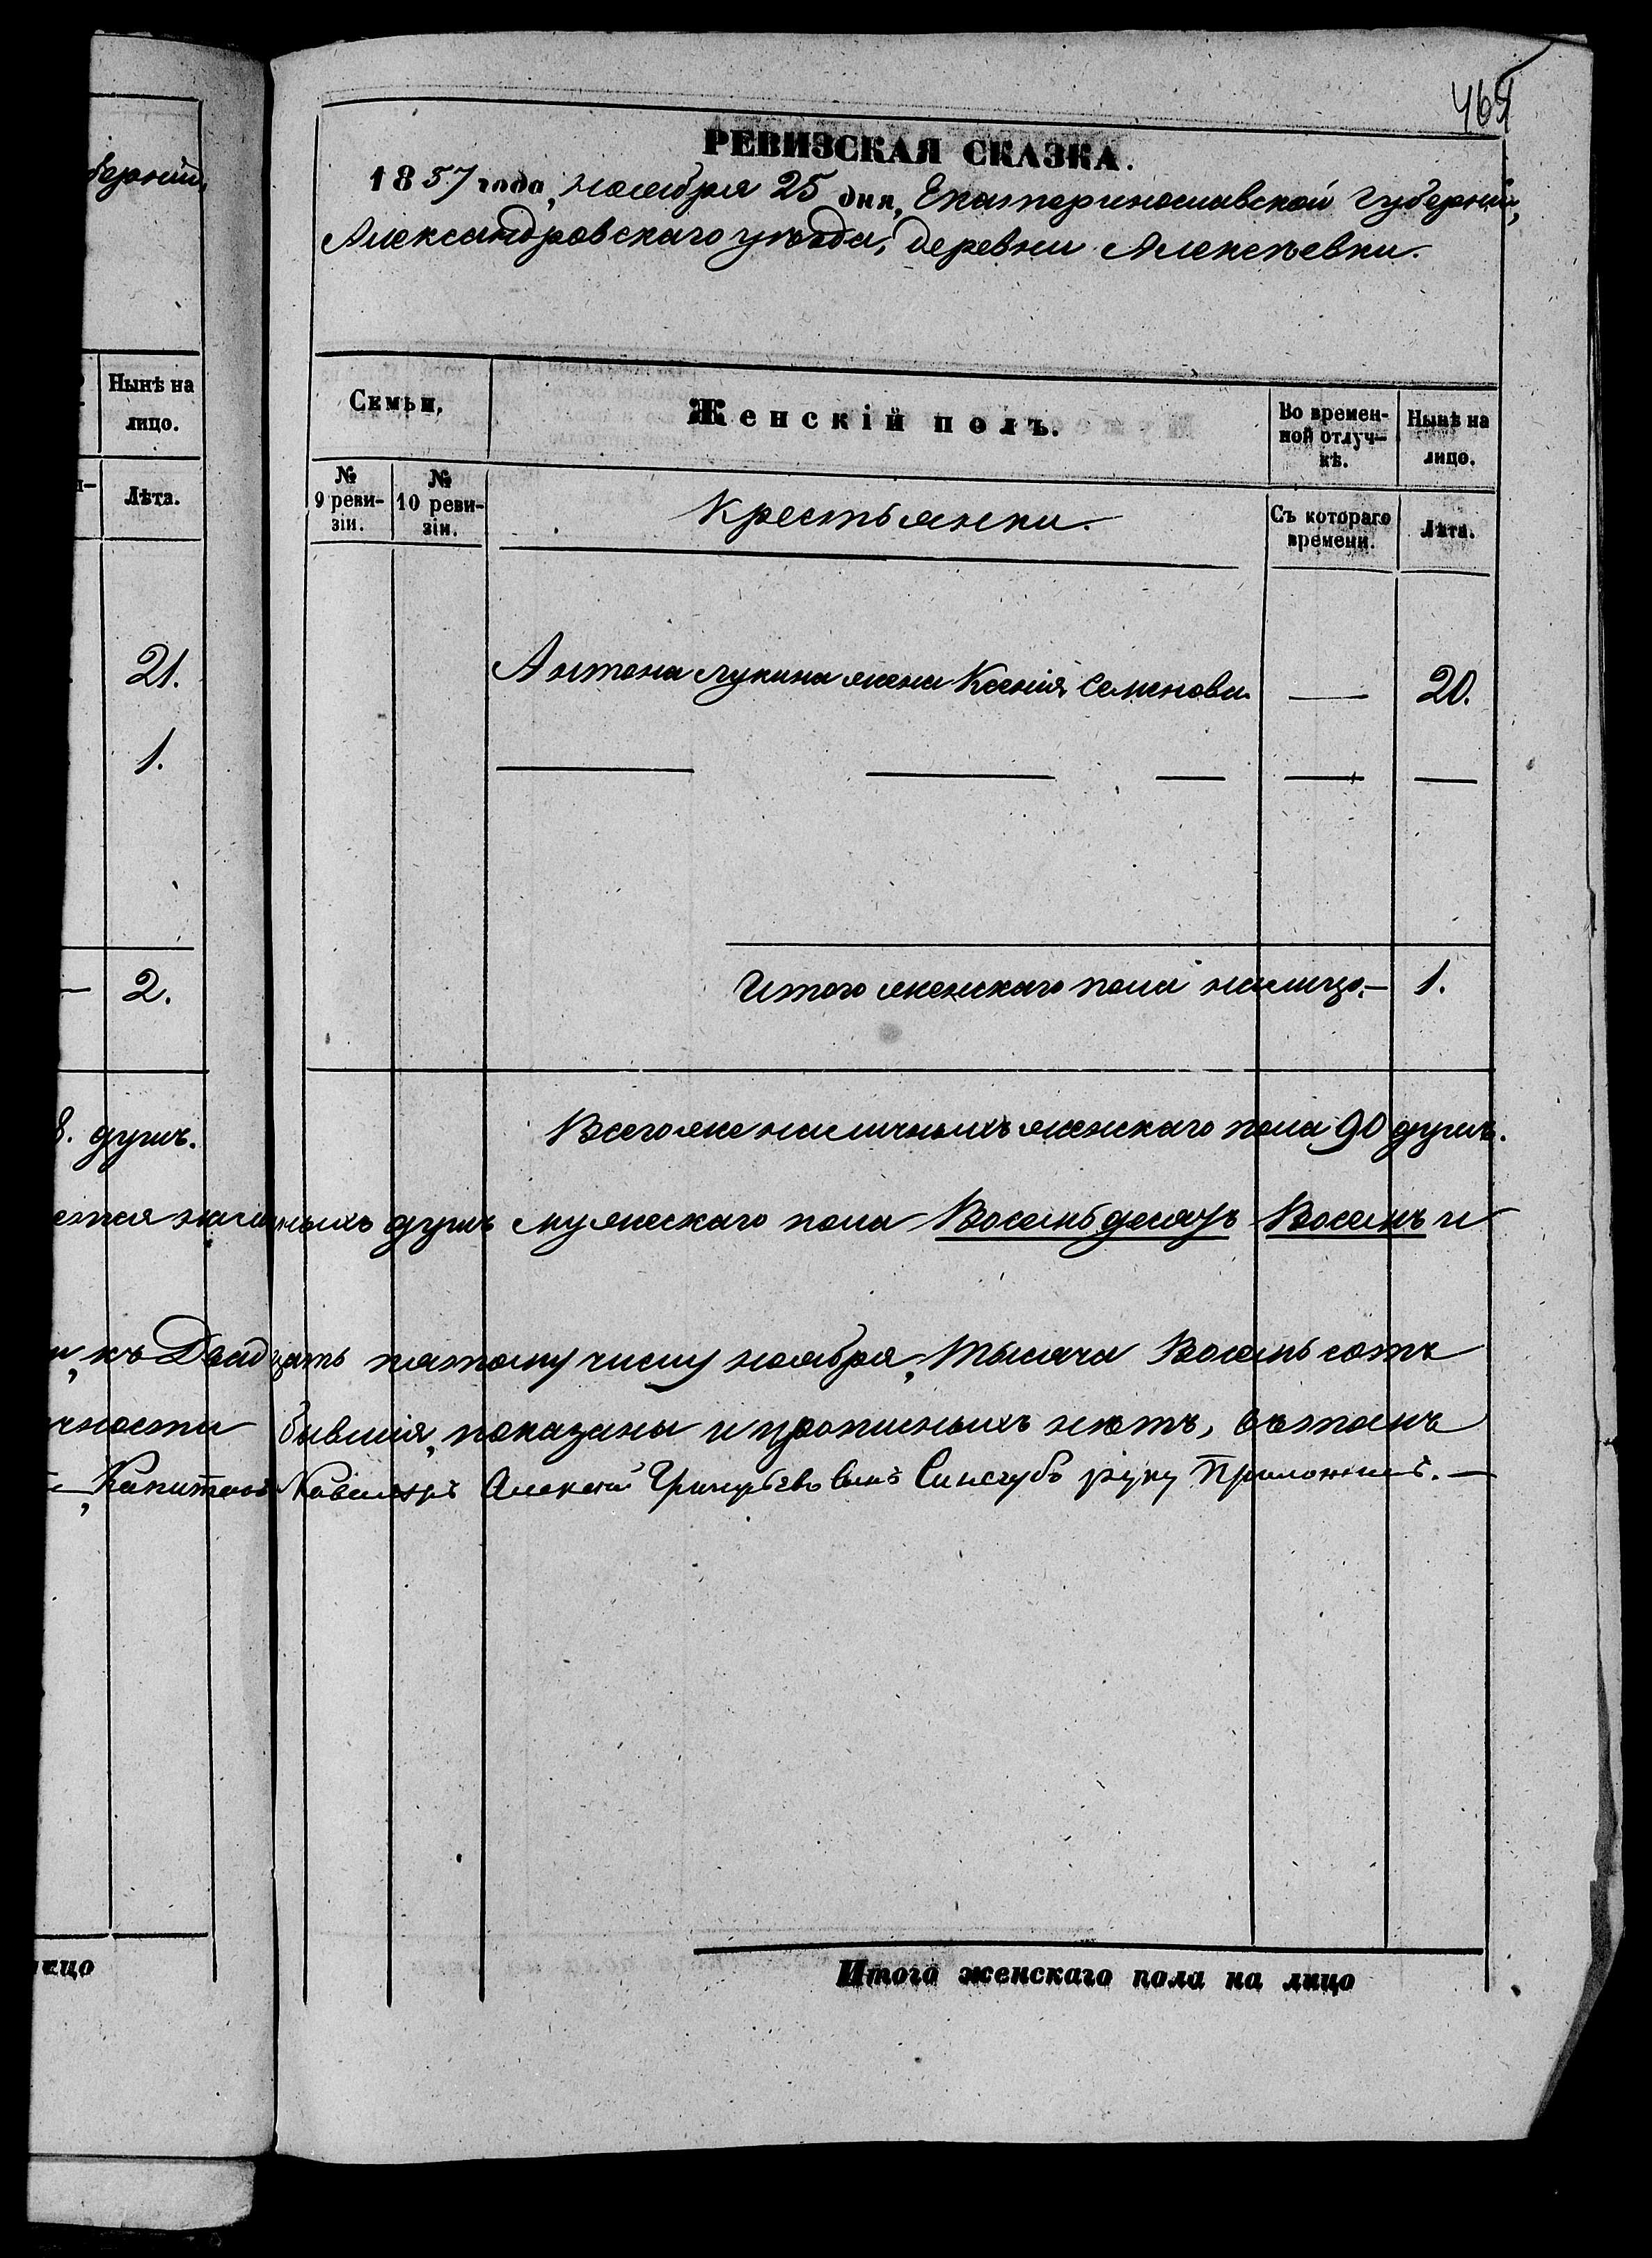 465
берніи,
РЕВИЗСКАЯ СКАЗКА.
1857 года, ноября 25 дня, Екатеринославской Губерніи,
Александровскаго уѣзда, деревни Алексѣевки.
Нынѣ на лицо.
Лѣта.
Семьи.
Женскій полъ.
Во временной отлучкѣ.
Нынѣ на лицо.
№ 9 ревизіи.
№ 10 ревизіи.
Крестьянки.
Съ котораго времени.
Лѣта.
21.
Антона Лукина жена Ксенія Семенова — 20.
1.
— 2.
Итого женскаго пола налицо — 1.
8. душъ.
Всего же наличныхъ женскаго пола 90 душъ.
ется наличныхъ душъ мужескаго пола Восемьдесятъ Восемь и
и, къ Двадцать пятому числу ноября, тысяча Восемьсотъ
чности бывшія, показаны и прописныхъ нѣтъ, въ томъ
Капитанъ Кавалеръ Алексѣй Григорьевъ сынъ Синегубъ руку Приложилъ. —
лицо
Итого женскаго пола на лицо